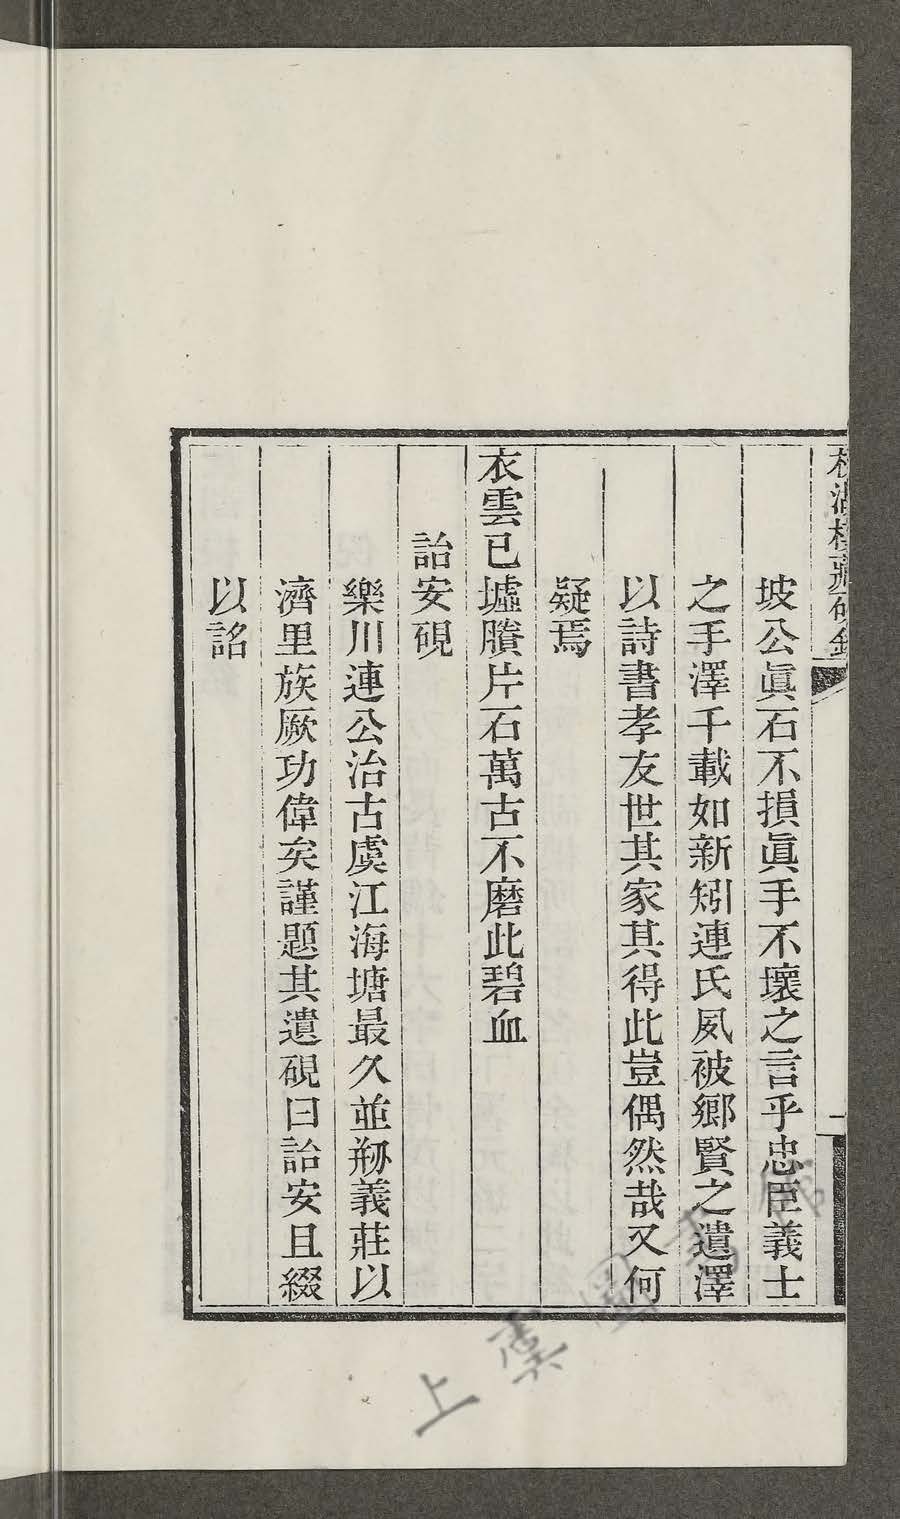 坡公眞石不損眞手不壞之言乎忠臣義士
之手澤千載如新矧連氏夙被鄉賢之遺澤
以詩書孝友世其家其得此豈偶然哉又何
疑焉
衣雲已墟賸片石萬古不磨此碧血
詒安硯
樂川連公治古虞江海塘最久並刱義莊以
濟里族厥功偉矣謹題其遺硯曰詒安且綴
以詺
上虞圖